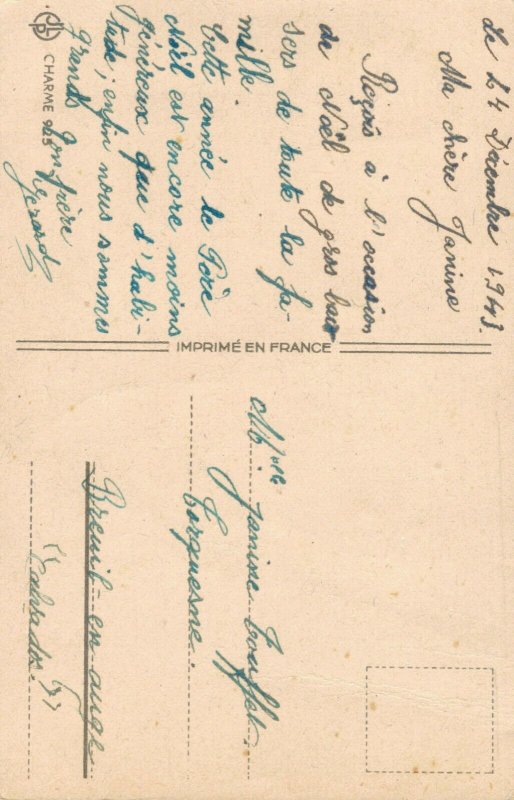 Le 24 Décembre 1943.
Ma chère Janine
Reçois à l'occasion
de Noël de gros bai-
sers de toute la fa-
mille.
Cette année le Père
Noël est encore moins
généreux que d'habi-
tude; enfin nous sommes
grands
Ton frère
Gérard
CHARME 925
IMPRIMÉ EN FRANCE
Melle Janine Touflet.
Torquesne.
Breuil-en-auge
(Calvados)